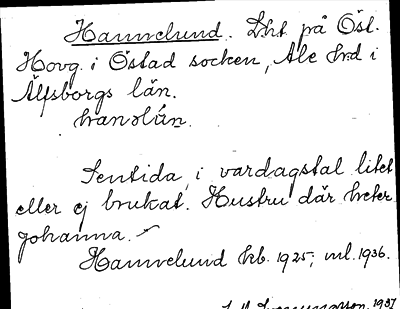 Hannelund. Lht på Öst.
Hovg. i Östad socken, Ale hrd i
Älfsborgs län.
hanəlún.
Sentida, i vardagstal litet
eller ej brukat. Hustru där heter
Johanna.
Hannelund kb. 1925; ml. 1936.
1937